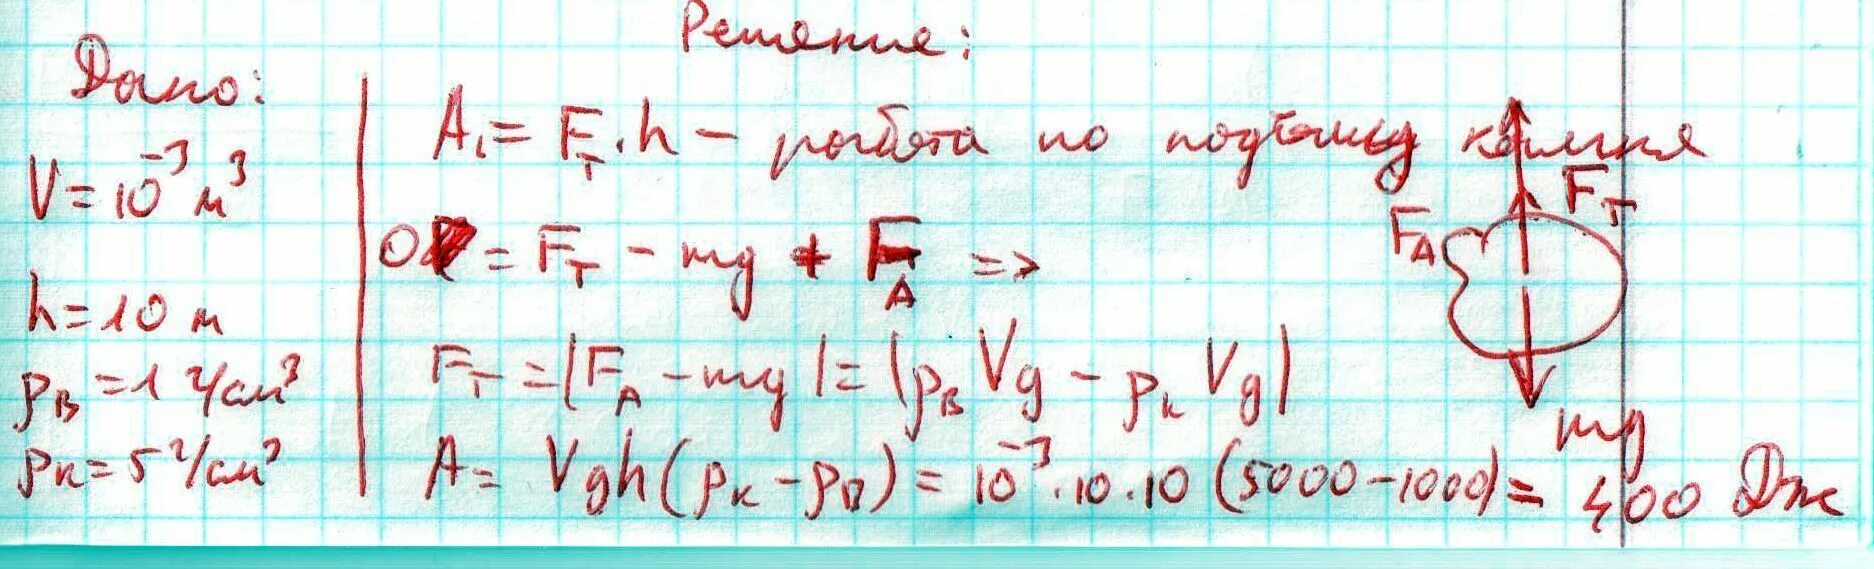 Решение:
Дано:
V = 10⁻³ м³
h = 10 м
ρ_B = 1 г/см³
ρ_к = 5 г/см³
A₁ = F_T · h – работа по подъёму камня
0 = F_T – mg + F_A =>
F_T = |F_A – mg| = |ρ_B Vg – ρ_к Vg|
A = Vgh(ρ_к – ρ_B) = 10⁻³ · 10 · 10 (5000 – 1000) = 400 Дж
F_T
F_A
mg